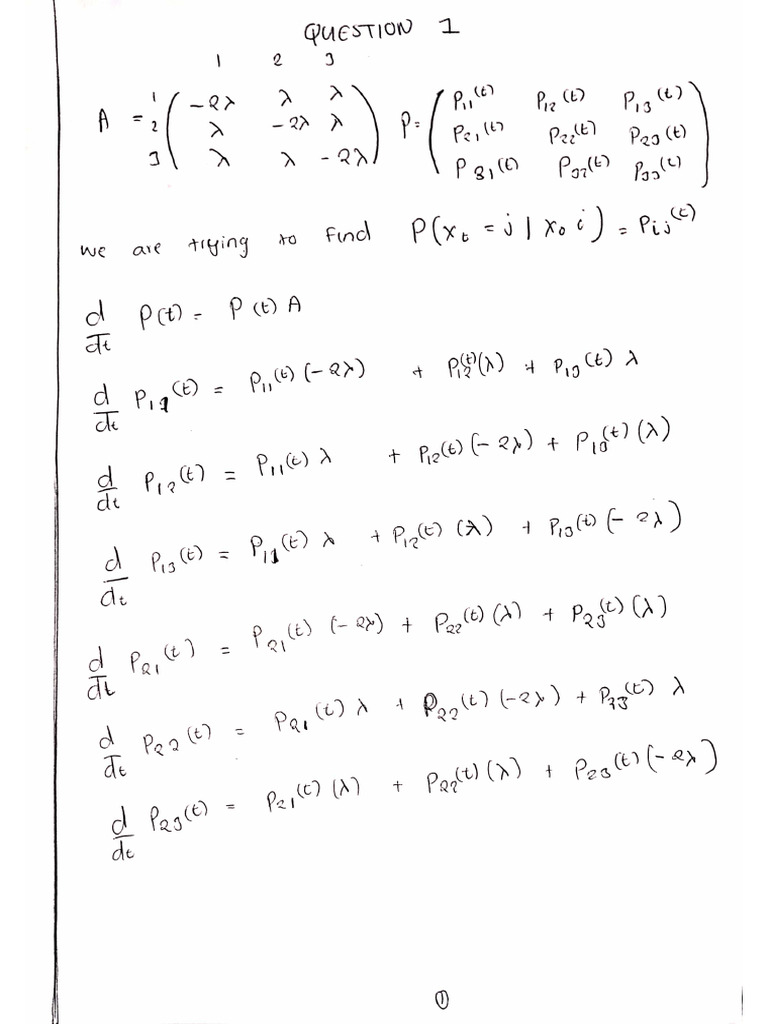 QUESTION 1
1 2 3
A = 1 2 3 ( -2λ λ λ ; λ -2λ λ ; λ λ -2λ ) P = ( P11(t) P12(t) P13(t) ; P21(t) P22(t) P23(t) ; P31(t) P32(t) P33(t) )
we are trying to find P(Xt = j | X0 i) = Pij(t)
d/dt P(t) = P(t) A
d/dt P11(t) = P11(t) (-2λ) + P12(t)(λ) + P13(t) λ
d/dt P12(t) = P11(t) λ + P12(t)(-2λ) + P13(t)(λ)
d/dt P13(t) = P11(t) λ + P12(t)(λ) + P13(t)(-2λ)
d/dt P21(t) = P21(t) (-2λ) + P22(t)(λ) + P23(t)(λ)
d/dt P22(t) = P21(t) λ + P22(t)(-2λ) + P23(t) λ
d/dt P23(t) = P21(t)(λ) + P22(t)(λ) + P23(t)(-2λ)
①